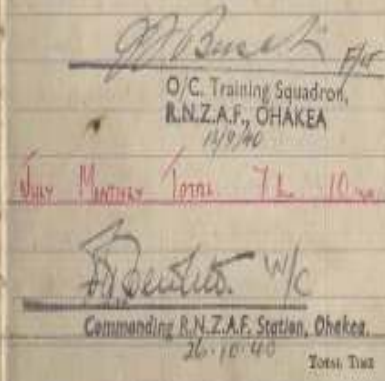 F/Lt
O/C. Training Squadron,
R.N.Z.A.F., OHAKEA
13/9/40
July Monthly Total 7 h 10 m
W/C
Commanding R.N.Z.A.F. Station, Ohakea.
26·10·40
Total Time